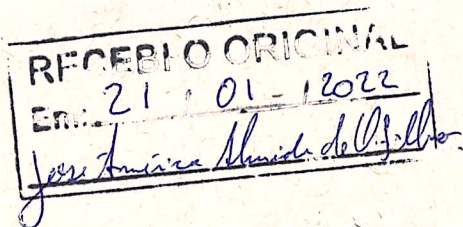 RECEBI O ORIGINAL
Em: 21 / 01 - / 2022
José Américo Almeida de O. Filho.